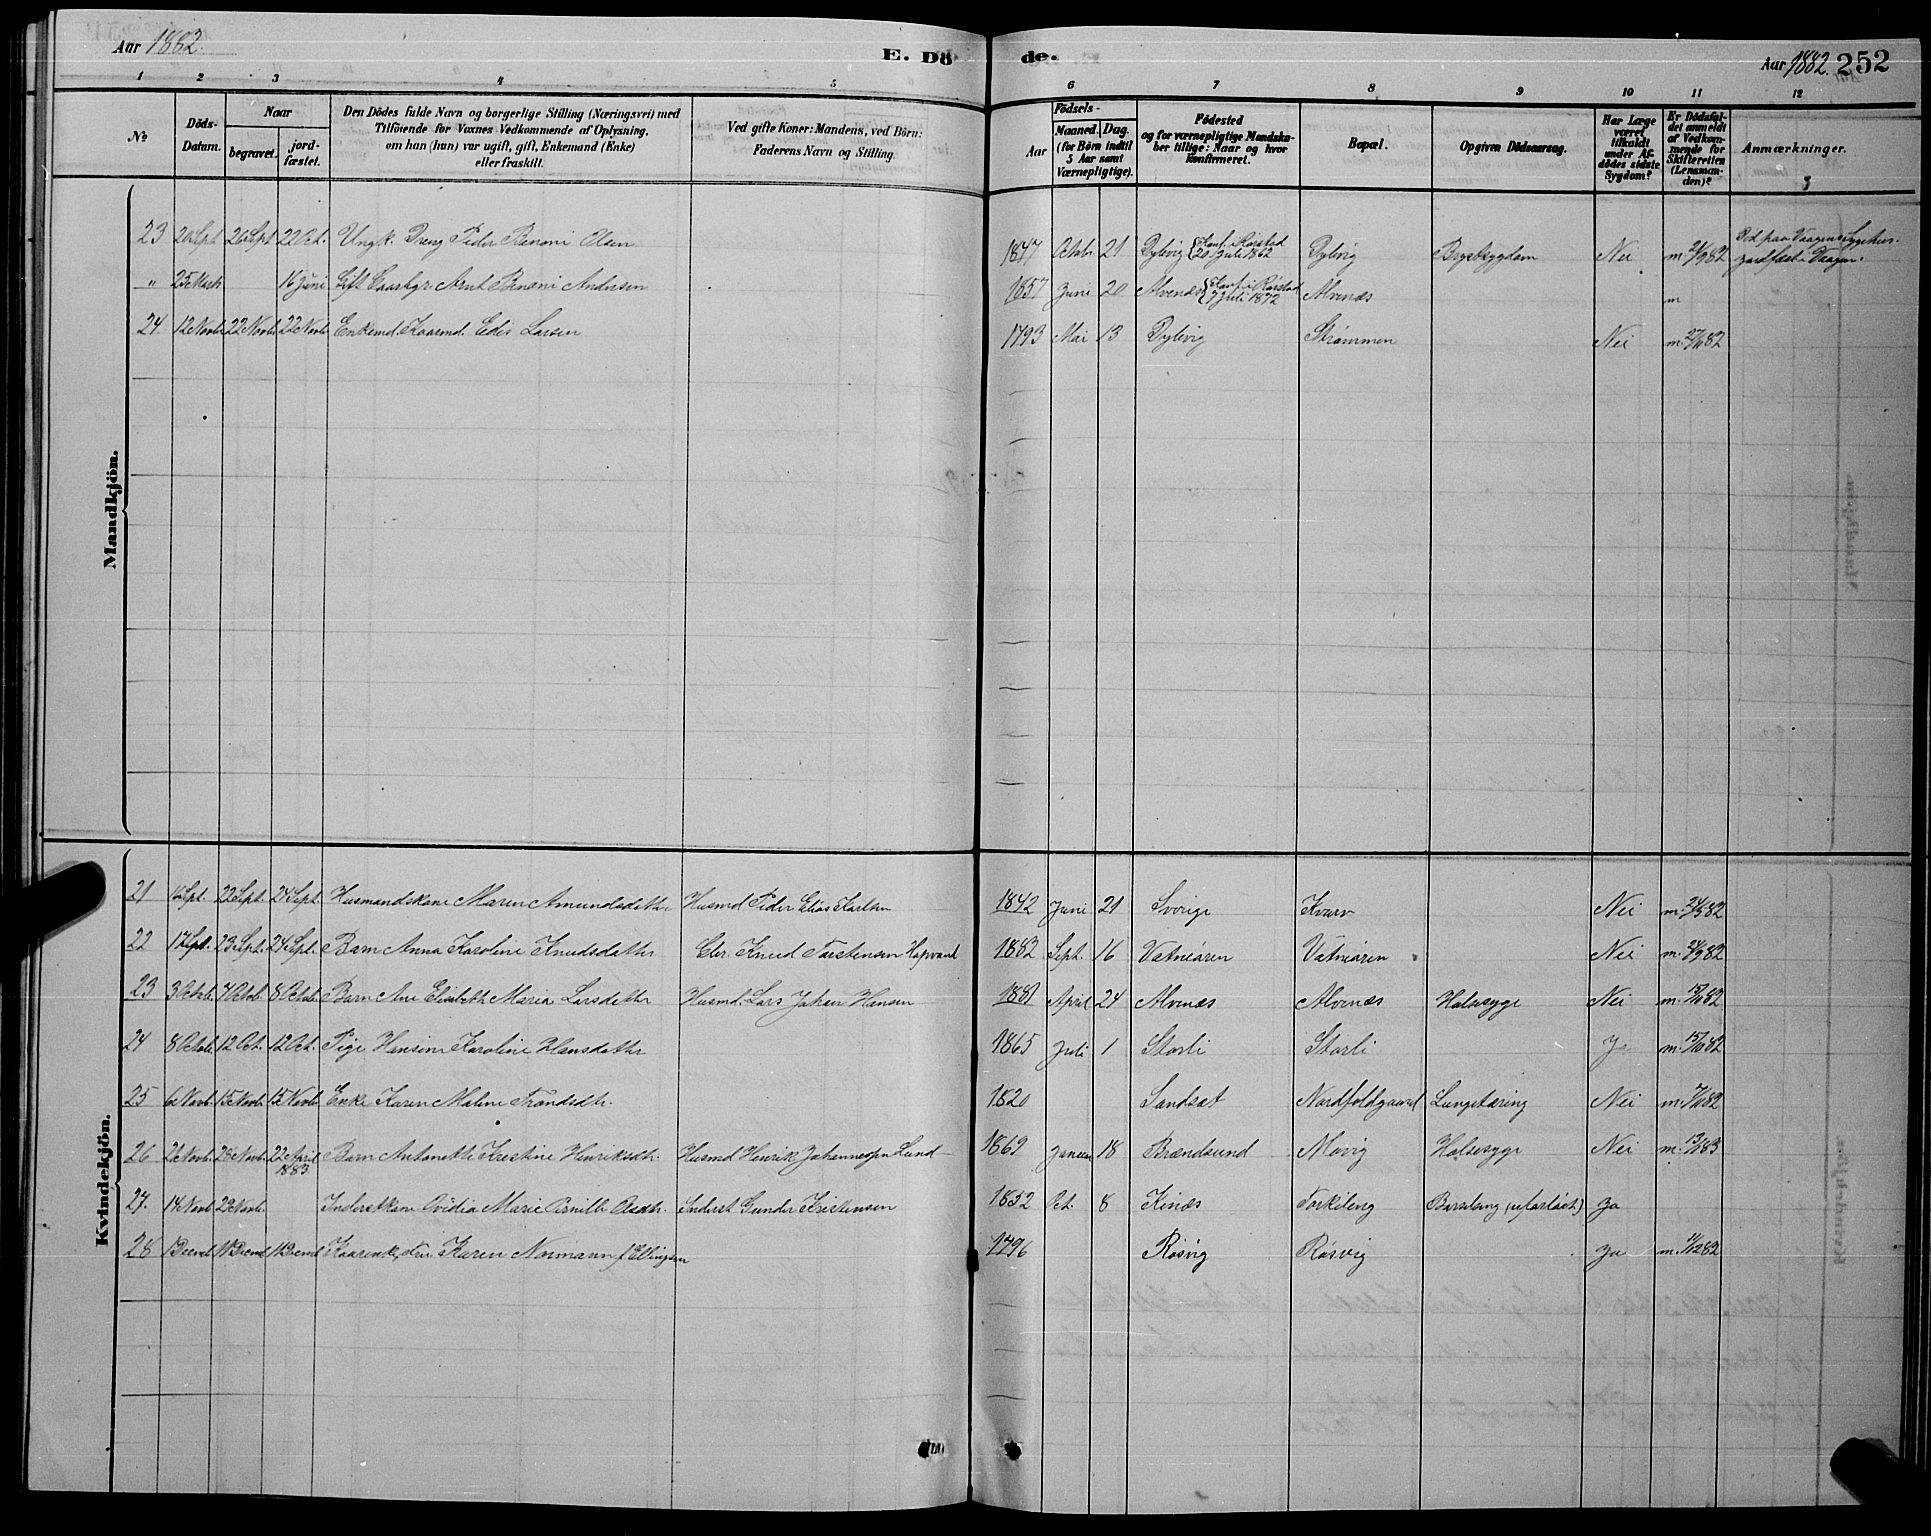 Aar 1882.
E. Dö
de.
Aar 1882. 252
1 2 3 4 5 6 7 8 9 10 11 12
№
Döds-Datum.
Naar
begravet.
jord-fæstet.
Den Dödes fulde Navn og borgerlige Stilling (Næringsvei) med
Tilföiende for Voxnes Vedkommende af Oplysning,
om han (hun) var ugift, gift, Enkemand (Enke)
eller fraskilt.
Ved gifte Koner: Mandens, ved Börn:
Faderens Navn og Stilling.
Födsels-
Aar
Maaned. Dag.
(for Börn indtil
5 Aar samt
Værnepligtige).
Födested
og for værnepligtige Mandska-
ber tillige: Naar og hvor
konfirmeret.
Bopæl.
Opgiven Dödsaarsag.
Har Læge
været
tilkaldt
under Af-
dödes sidste
Sygdom?
Er Dödsfal-
det anmeldt
af Vedkom-
mende for
Skifteretten
(Lensman-
den)?
Anmærkninger.
Mandkjön.
23 20 Sept 26 Sept 22 Oct. Ungk. Dreng Peder Benoni Olsen 1847 Octob. 21 Dylivig {Konf. i Rørstad 20 Juli 1862 Dylivig Brystsygdom Nei m. 21/9 82 Død paa Vaagens Sygehus. jordfæst i Vaagan.
" 25 Mark 16 Juni Gift Gaardbgr. Arnt Benoni Andersen 1857 Juni 20 Alvenes {Konf. i Rørstad 7 Juli 1872 Alvenæs m
24 12 Novb. 22 Novb. 22 Novb. Enkemd. Kaarmd. Edis Larsen 1793 Mai 13 Dylivig Strømmen Nei m. 27/11 82
Kvindekjön.
21 16 Sept. 22 Sept. 24 Sept. Husmandskone Maren Amundsdatter Husmd Peder Elias Karlsen 1842 Juni 21 Sverige Kvarv Nei m. 24/9 82
22 17 Sept. 23 Sept. 24 Sept. Barn Anna Karoline Knudsdatter Knud Torstensen 1882 Sept. 16 Vatnøren Vatnøren Nei m. 24/9 82
23 3 Octob. 7 Octob. 8 Octob. Barn Ane Elisabeth Maria Larsdatter Husmd. Lars Johan Hansen 1881 April 24 Alvenæs Alvenæs Halssyge Nei m. 82
24 8 Octob. 12 Oct. 12 Oct. Pige Hansine Karoline Hansdatter 1865 Juli 1 Storli Storli Ja m. 15/10 82
25 6 Novb. 15 Novb. 15 Novb. Enke Karen Maline Trondsdtr. 1820 Sandsæt Nordfoldgaard Lungetæring Nei m. 7/11 82
26 26 Novb. 28 Novb. 22 April 1883 Barn Antonette Kristine Henriksdtr. Husmd Henrik Johannessen Lund 1869 Januar 18 Brændsund Movig Halsesyge Nei m. 83
27. 14 Novb 29 Novb. Inderstkone Ovidia Marie Pernille Inderst Gunder Kristensen 1852 Oct. 8 Kinæs Torkileng Barselseng (uforløst) Ja
28 1 Decmb 11 Decmb 11 Decmb Kaarenke, Fru Karen Normann f. Ellingsen 1796 Røsvig Røsvig Ja m. 11/12 82